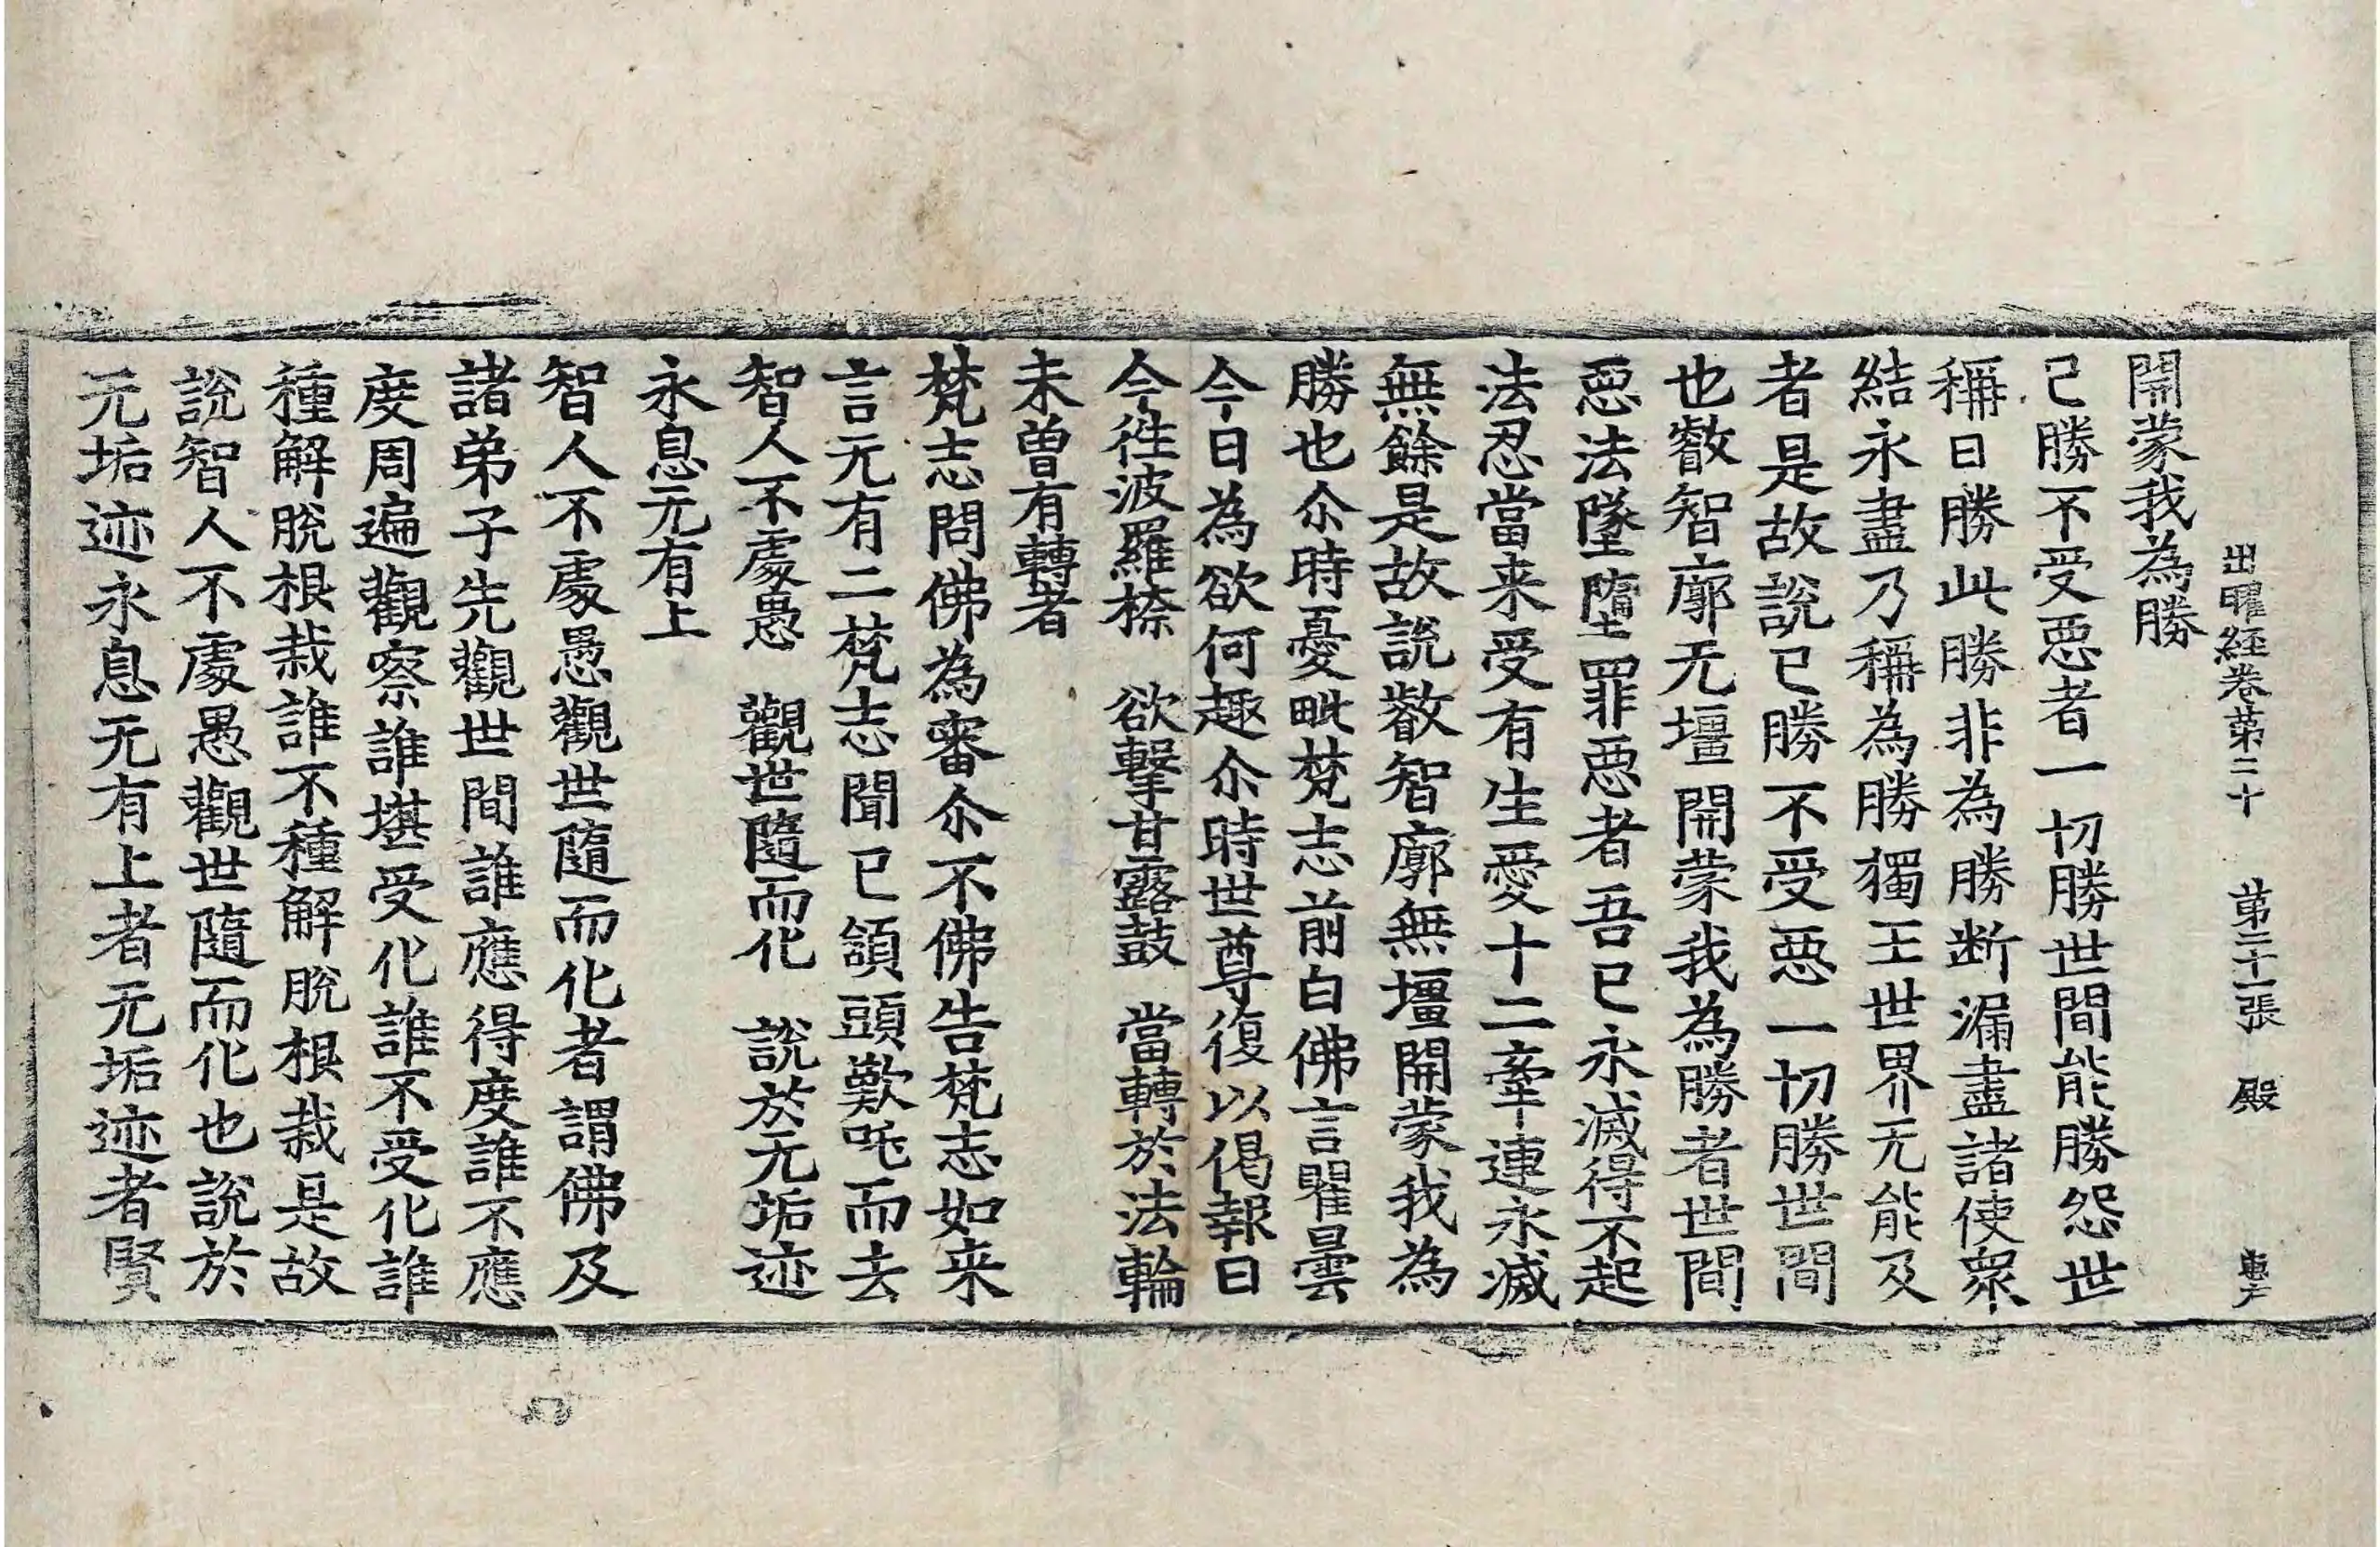 出曜経卷第二十　第二十一張　殿
開蒙我為勝
己勝不受惡者一切勝世間能勝怨世
稱曰勝此勝非為勝断漏盡諸使眾
結永盡乃稱為勝獨王世界无能及
者是故說已勝不受惡一切勝世間
也叡智廓无壃開蒙我為勝者世間
惡法墜墮罪惡者吾已永滅得不起
法忍當来受有生愛十二牽連永滅
無餘是故說叡智廓無壃開蒙我為
勝也尒時憂毗梵志前白佛言瞿曇
今日為欲何趣尒時世尊復以偈報曰
今徃波羅㮈　欲擊甘露鼓　當轉於法輪
未曾有轉者
梵志問佛為審尒不佛告梵志如来
言无有二梵志聞已頷頭歎吒而去
智人不處愚　觀世隨而化　說於无垢迹
永息无有上
智人不處愚觀世隨而化者謂佛及
諸弟子先觀世間誰應得度誰不應
度周遍觀察誰堪受化誰不受化誰
種解脫根栽誰不種解脫根栽是故
說智人不處愚觀世隨而化也說於
无垢迹永息无有上者无垢迹者賢